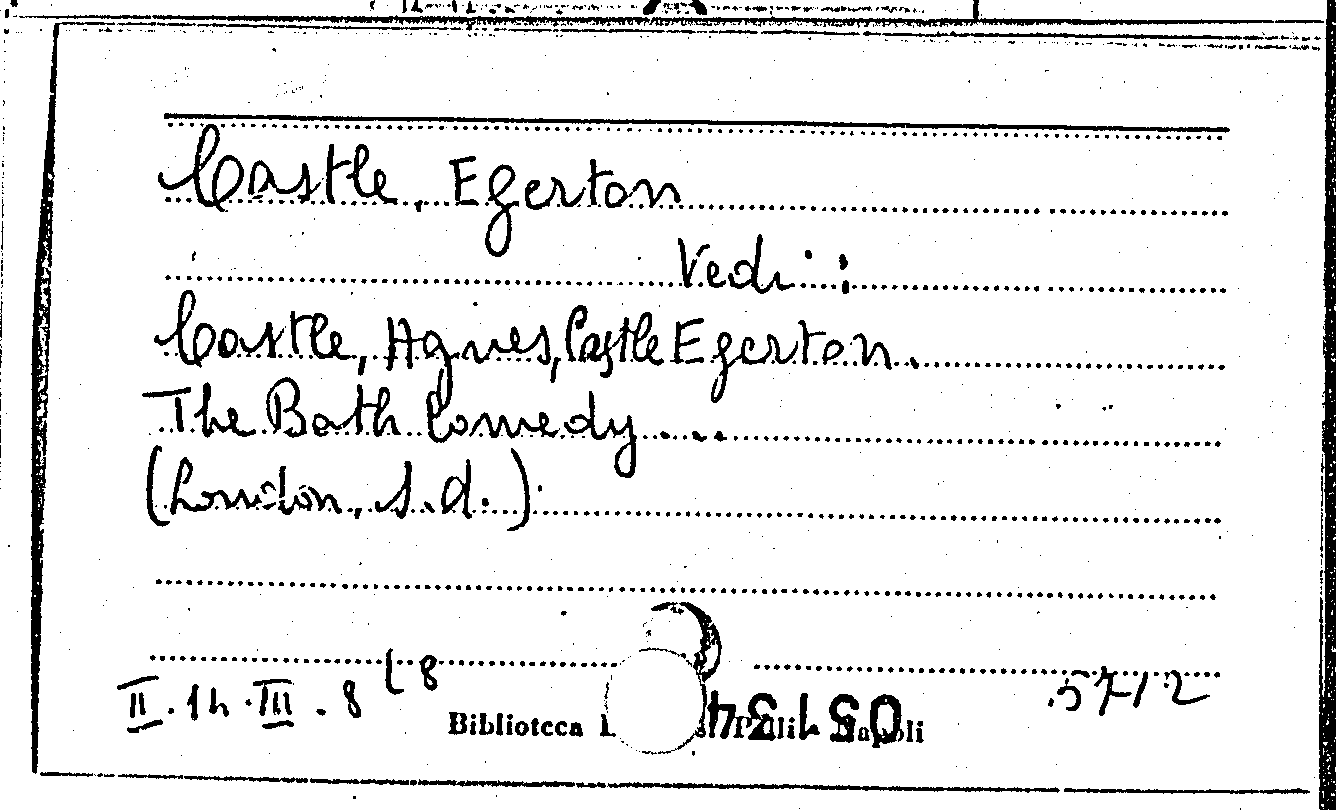 Castle, Egerton
Vedi:
Castle, Agnes, Castle Egerton.
The Bath Comedy ...
(London, s.d.).
II.14.III.8 (8
5712
Biblioteca